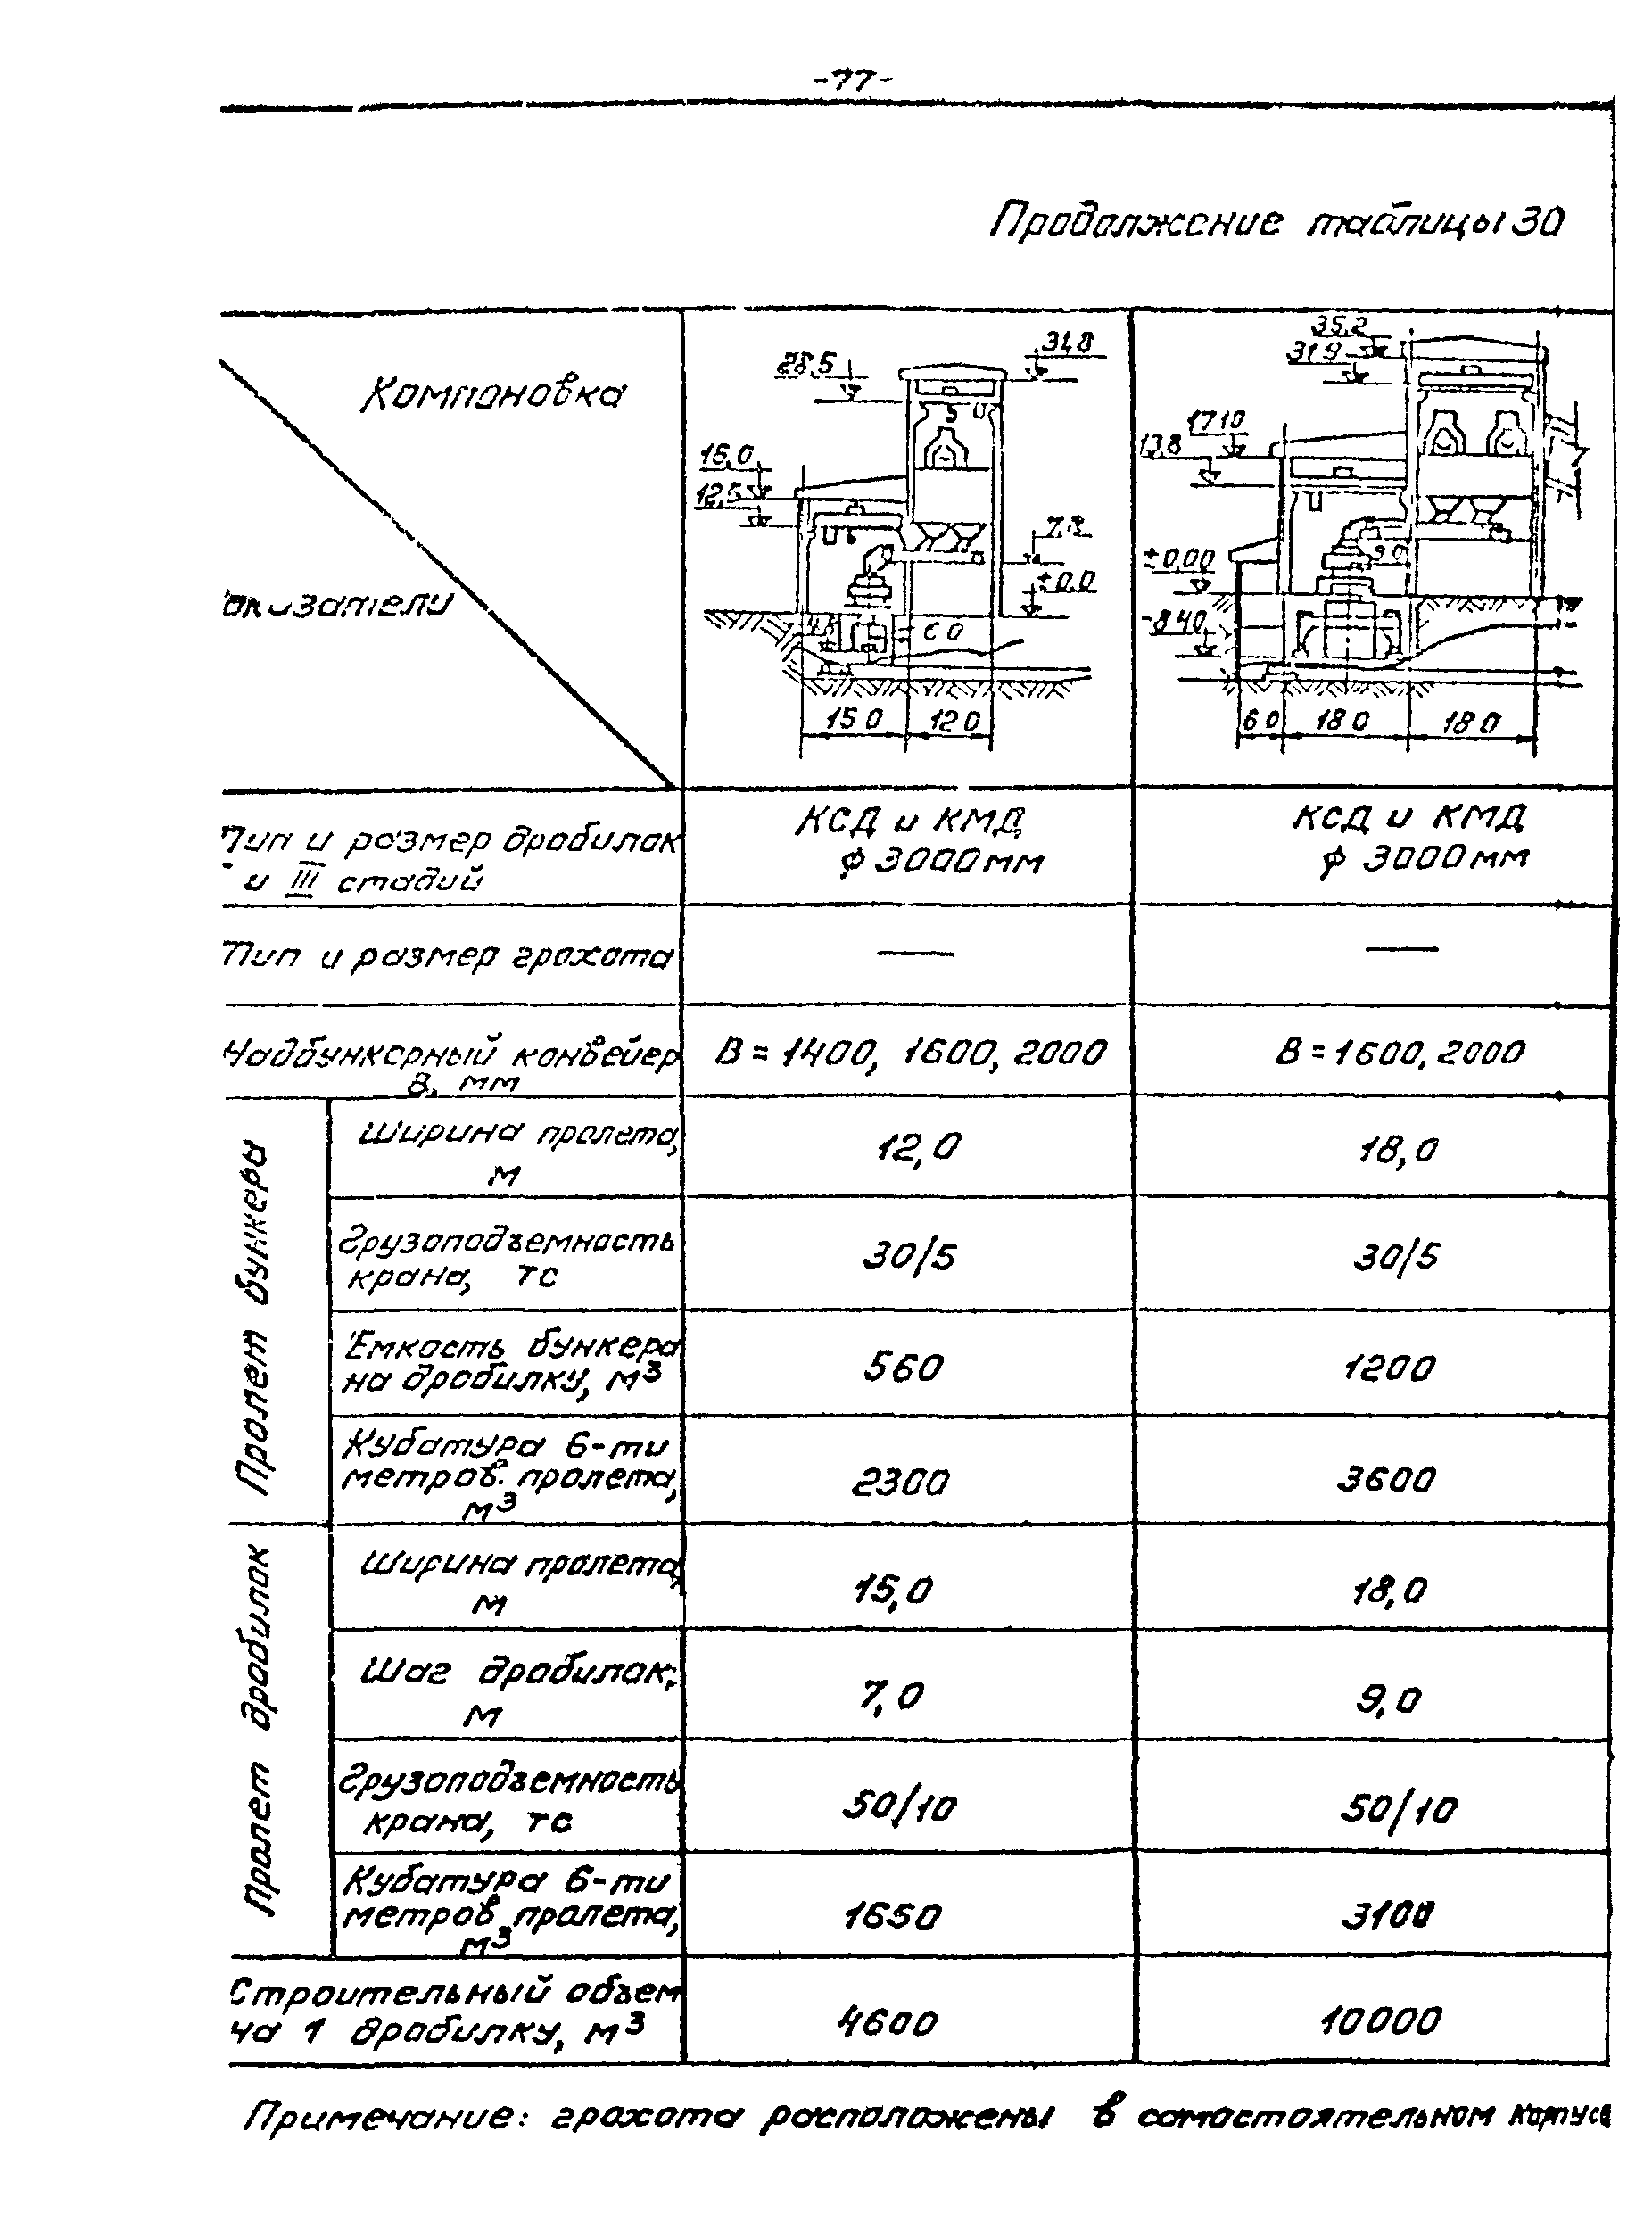 -77-
Продолжение таблицы 30
Компоновка
28,5
31,8
16,0
12,5
7,2
±0,0
6 0
15 0
12 0
35,2
31 9
17 10
13,8
±0,00
-8 40
6 0
18 0
18 0
Тип и размер дробилок
и III стадий
КСД и КМД
ϕ 3000 мм
КСД и КМД
ϕ 3000 мм
Тип и размер грохота
—
—
Надбункерный конвейер
В, мм
В = 1400, 1600, 2000
В = 1600, 2000
Пролет бункера
Ширина пролета,
м
12,0
18,0
Грузоподъемность
крана, тс
30/5
30/5
Емкость бункера
на дробилку, м³
560
1200
Кубатура 6-ти
метров. пролета,
м³
2300
3600
Пролет дробилок
Ширина пролета,
м
15,0
18,0
Шаг дробилок,
м
7,0
9,0
Грузоподъемность
крана, тс
50/10
50/10
Кубатура 6-ти
метров пролета,
м³
1650
3100
Строительный объем
на 1 дробилку, м³
4600
10000
Примечание: грохота расположены в самостоятельном корпусе